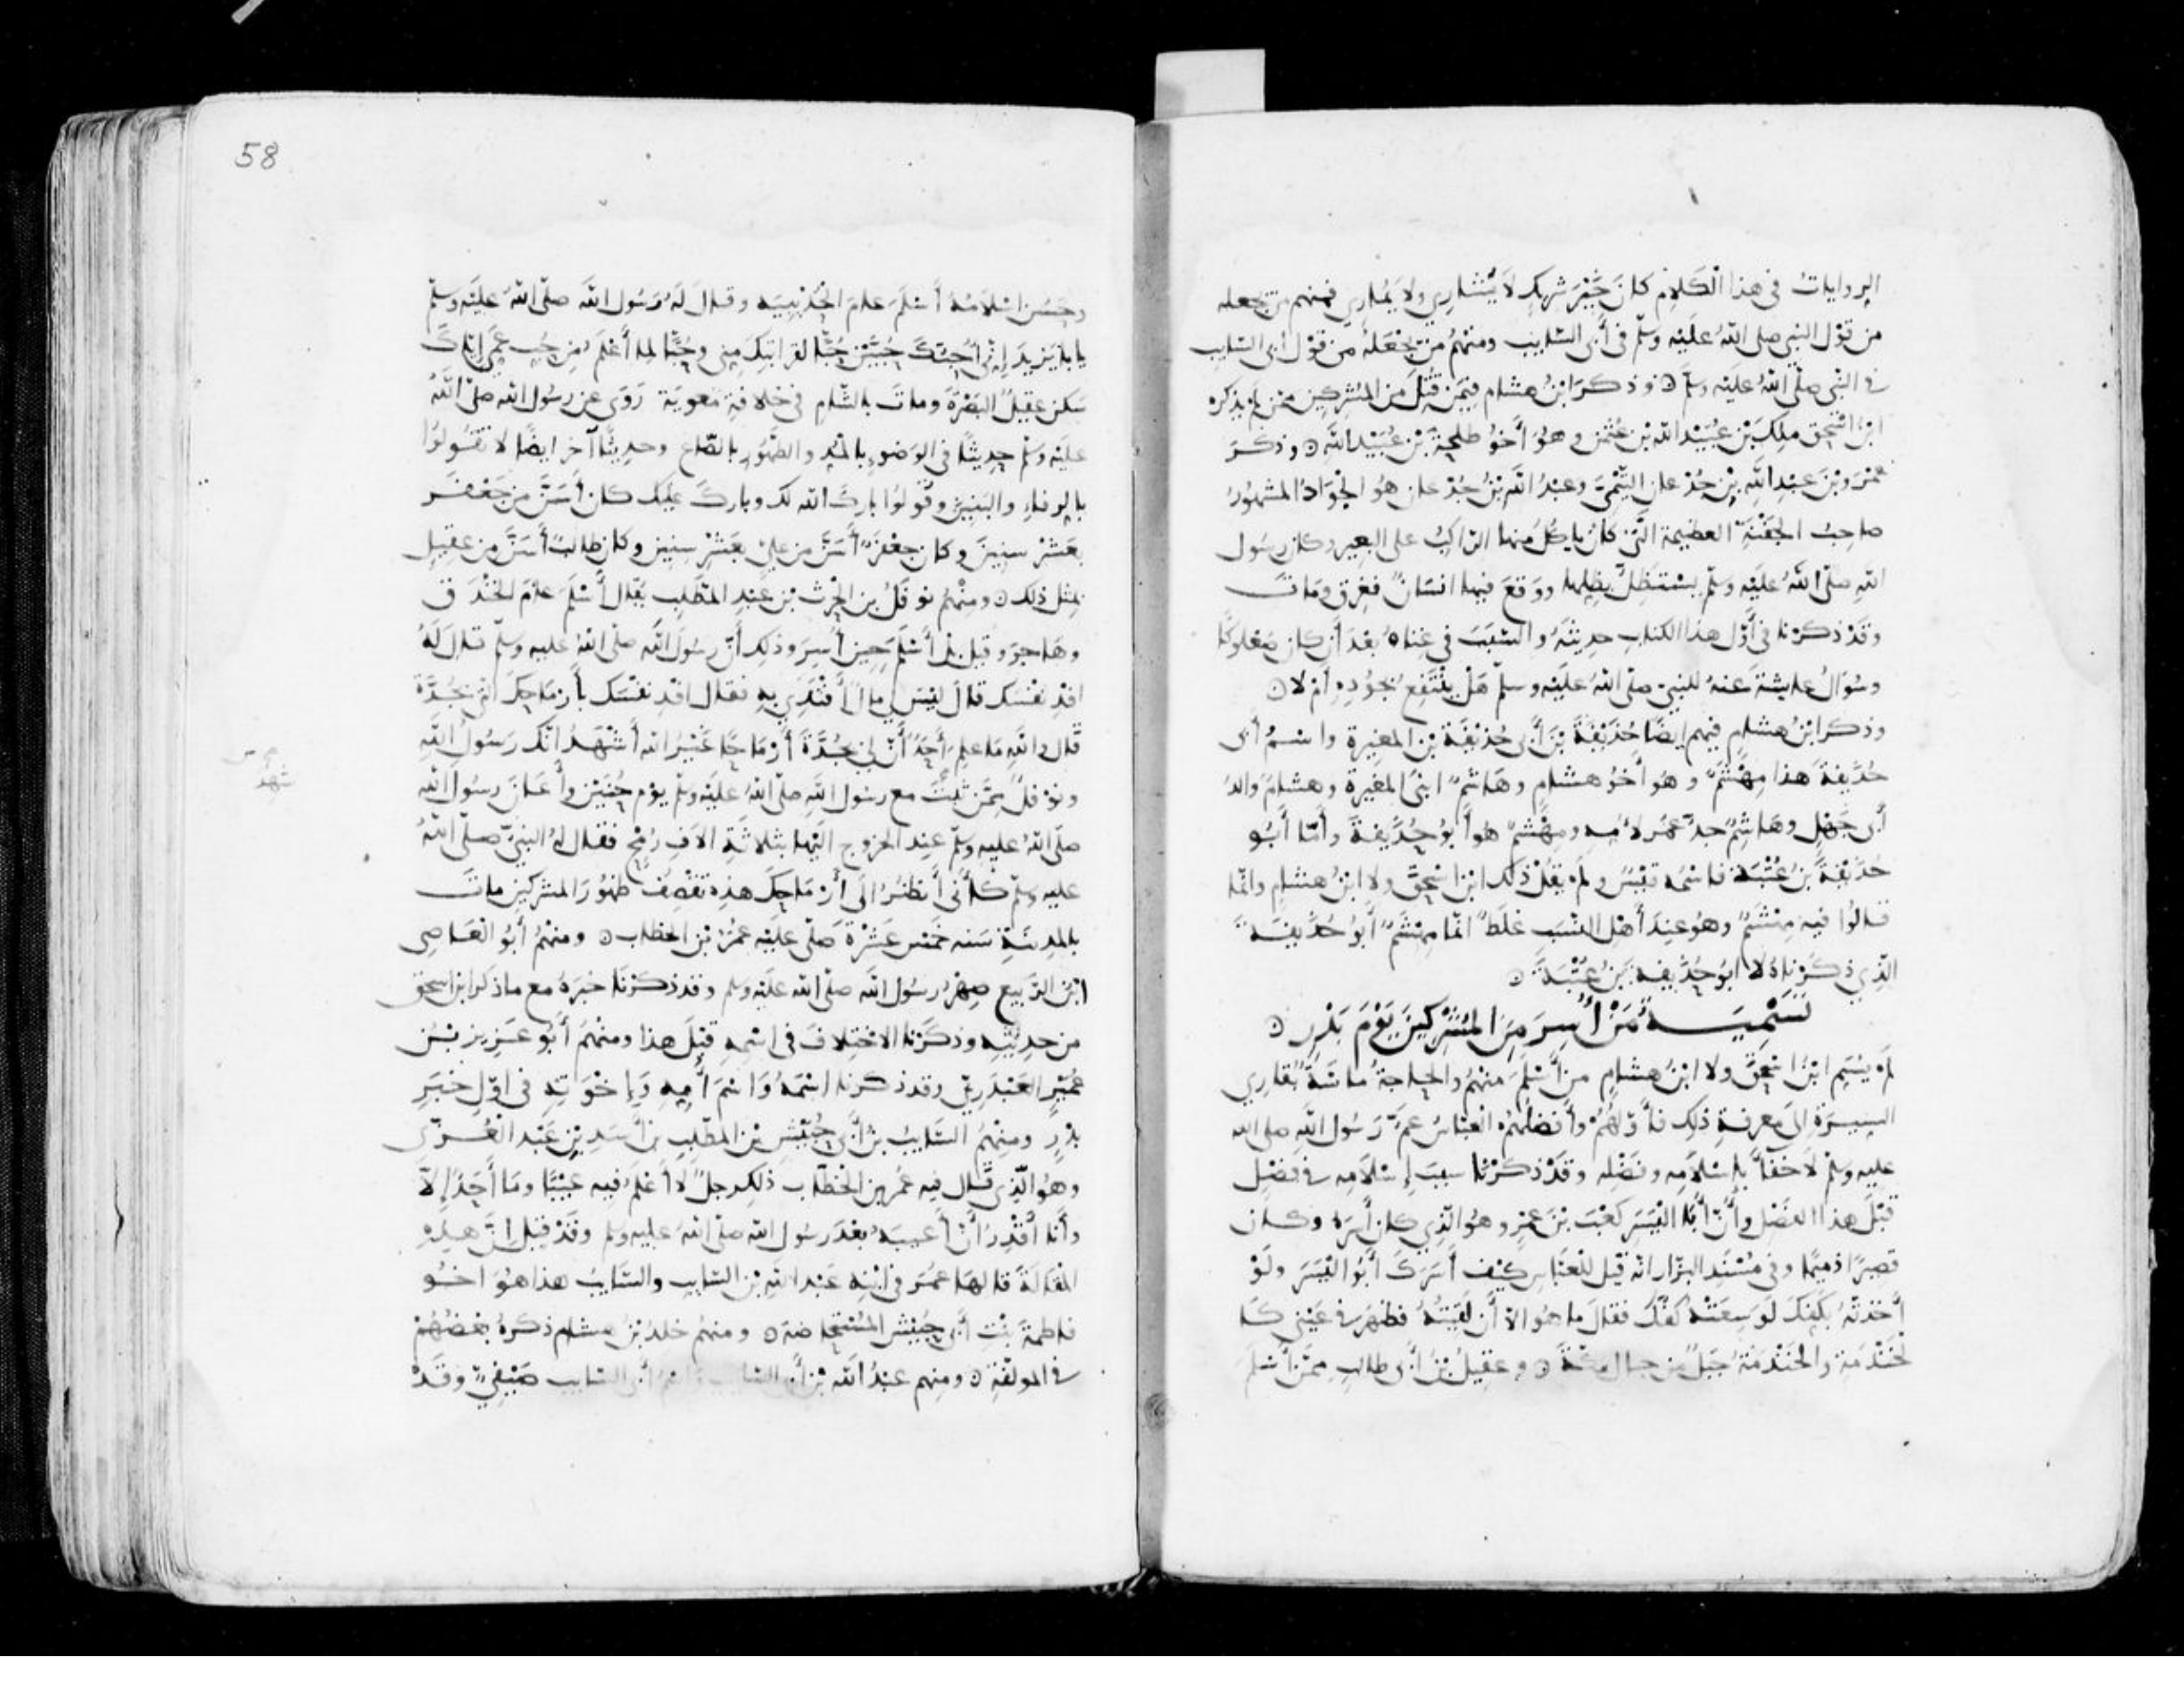 الروايات في هذا الكلام كان خير شريك لا يشاري ولا يماري فمنهم من يجعله
من قول النبي صلى الله عليه وسلم في أبي السايب ومنهم من يجعله من قول ابي السايب
في النبي صلى الله عليه وسلم ۞ وذكر ابن هشام فيمن قتل من المشركين ممن لم يذكره
ابن اسحق ملك بن عبيد الله بن عثمن وهو أخو طلحة بن عبيد الله ۞ وذكر
عمرو بن عبد الله بن جدعان التيمي وعبد الله بن جدعان هو الجواد المشهور
صاحب الجفنة العظيمة التي كان ياكل منها الراكب على البعير وكان رسول
الله صلى الله عليه وسلم يستظل بظلها ووقع فيها انسان فغرق ومات
وقد ذكرنا في أول هذا الكتاب حديثه والسبب في غناه بعد أن كان صعلوكا
وسؤال عايشة عنه للنبي صلى الله عليه وسلم هل ينتفع بجوده أم لا ۞
وذكر ابن هشام فيهم ايضا حذيفة بن أبي حذيفة بن المغيرة واسم أبي
حذيفة هذا مهشم وهو أخو هشام وهاشم ابني المغيرة وهشام والد
أبي جهل وهاشم جد عمر لأمه ومهشم هو أبو حذيفة وأما أبو
حذيفة بن عتبة فاسمه قيس ولم يقل ذلك ابن اسحق ولا ابن هشام وانما
قالوا فيه مهشم وهو عند أهل النسب غلط انما مهشم أبو حذيفة
الذي ذكرناه لا ابو حذيفة بن عتبة ۞
تسمية من أسر من المشركين يوم بدر ۞
لم يسم ابن اسحق ولا ابن هشام من أسلم منهم والحاجة ماسة بقاري
السيرة إلى معرفة ذلك فأولهم وأفضلهم العباس عم رسول الله صلى الله
عليه وسلم لا خفاء بإسلامه وفضله وقد ذكرنا سبب إسلامه في فصل
قبل هذا الفصل وأن أبا اليسر كعب بن عمرو هو الذي كان أسره وكان
قصيرا ذميما وفي مسند البزار انه قيل للعباس كيف أسرك أبو اليسر ولو
أخذته بكفك لوسعته كفك فقال ما هو الا أن لقيته فظهر في عيني كا
لخندمة والخندمة جبل من جبال مكة ۞ وعقيل بن أبي طالب ممن أسلم
58
وحسن اسلامه أسلم عام الحديبية وقال له رسول الله صلى الله عليه وسلم
يابا يزيد إني أحبك حبين حبا لقرابتك مني وحبا لما أعلم من حب عمي إياك
سكن عقيل البصرة ومات بالشام في خلافة معوية روى عن رسول الله صلى الله
عليه وسلم حديثا في الوضوء بالمد والطهور بالصاع وحديثا آخر ايضا لا تقولوا
بالرفاء والبنين وقولوا بارك الله لك وبارك عليك كان أسن من جعفر
بعشر سنين وكان جعفر أسن من علي بعشر سنين وكان طالب أسن من عقيل
بمثل ذلك ۞ ومنهم نوفل بن الحرث بن عبد المطلب يقال أسلم عام الخندق
وهاجر وقيل بل أسلم حين أسر وذلك أن رسول الله صلى الله عليه وسلم قال له
افد نفسك قال ليس لي مال أفتدي به فقال افد نفسك بأرماحك التي بجدة
قال والله ما علم أحد أن لي بجدة أرماحا غير الله أشهد انك رسول الله
شهد
ونوفل ممن ثبت مع رسول الله صلى الله عليه وسلم يوم حنين وأعان رسول الله
صلى الله عليه وسلم عند الخروج اليها بثلاثة الاف رمح فقال له النبي صلى الله
عليه وسلم كأني أنظر الى أرماحك هذه تقصف ظهور المشركين مات
بالمدينة سنه خمس عشرة صلى عليه عمر بن الخطاب ۞ ومنهم أبو العاصي
ابن الربيع صهر رسول الله صلى الله عليه وسلم وقد ذكرنا خبره مع ما ذكر ابن اسحق
من حديثه وذكرنا الاختلاف في اسمه قبل هذا ومنهم أبو عزيز بن
عمير العبدري وقد ذكرنا اسمه واسم أمه وإخوته في اول خبر
بدر ومنهم السايب بن أبي حبيش بن المطلب بن أسد بن عبد العزى
وهو الذي قال فيه عمر بن الخطاب ذلك رجل لا أعلم فيه عيبا وما أحد إلا
وأنا أقدر أن أعيبه بعد رسول الله صلى الله عليه وسلم وقد قيل ان هذه
المقالة قالها عمر في ابنه عبد الله بن السايب والسايب هذا هو اخو
فاطمة بنت أبي حبيش المستحاضة ۞ ومنهم خلد بن هشام ذكره بعضهم
في المولفة ۞ ومنهم عبد الله بن أبي السايب واسم أبي السايب صيفي وقد